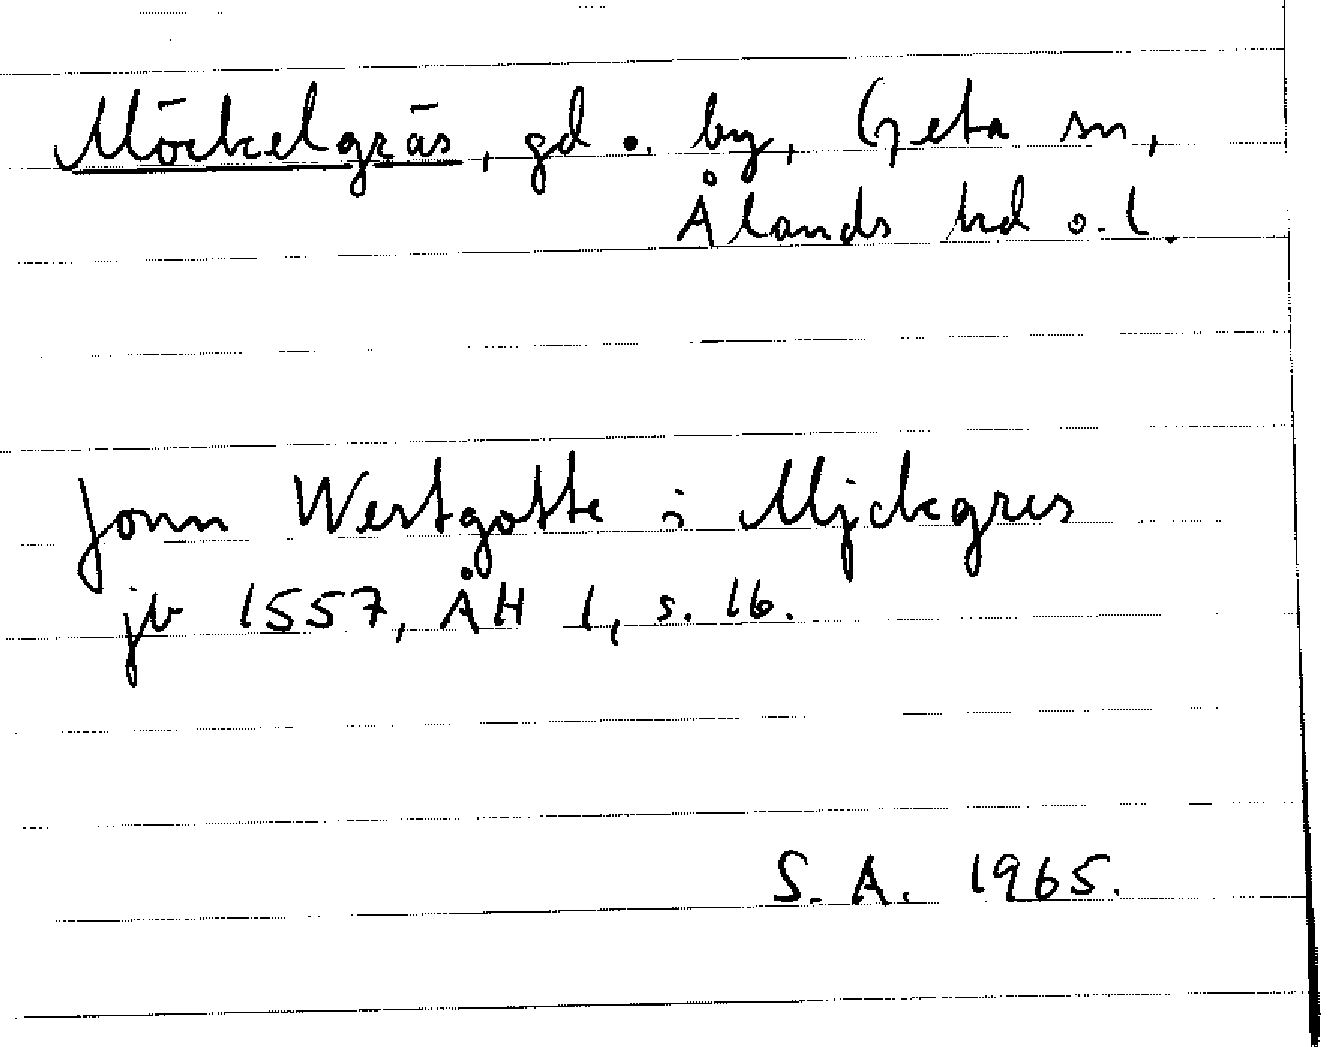 Möckelgräs, gd o. by, Geta sn,
Ålands hd o. l.
Jonn Westgotte i Mjckegres
jb 1557, ÅH 1, s. 16.
S. A. 1965.